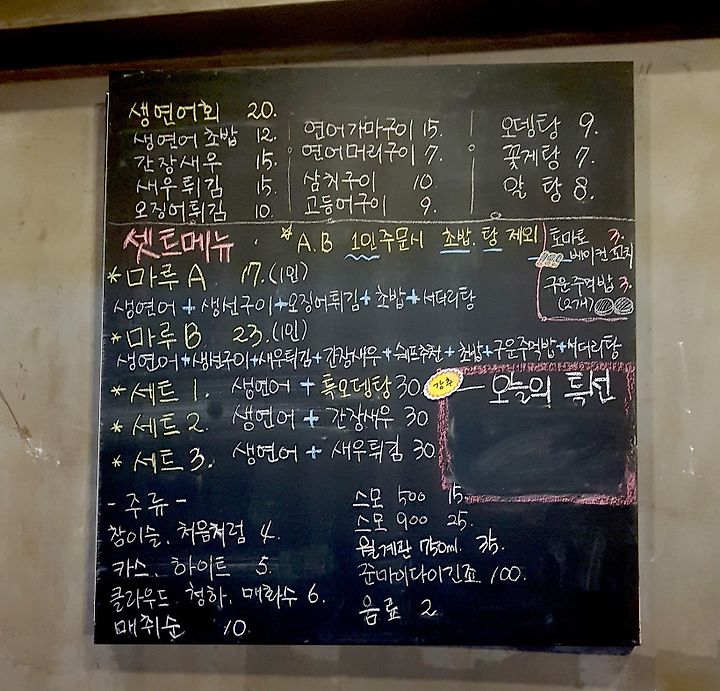 생연어회 20.
생연어 초밥 12.
간장새우 15.
새우튀김 15.
오징어튀김 10.
연어가마구이 15.
연어머리구이 7.
삼치구이 10.
고등어구이 9.
오뎅탕 9.
꽃게탕 7.
알탕 8.
셋트메뉴 * A.B 1인주문시 초밥.탕 제외
토마토 3.
베이컨꼬치
구운주먹밥 3.
(2개)
* 마루 A 17.(1인)
생연어 + 생선구이 + 오징어튀김 + 초밥 + 서더리탕
* 마루 B 23.(1인)
생연어 + 생선구이 + 새우튀김 + 간장새우 + 쉐프추천 + 초밥 + 구운주먹밥 + 서더리탕
* 세트 1. 생연어 + 특오뎅탕 30.
* 세트 2. 생연어 + 간장새우 30
* 세트 3. 생연어 + 새우튀김 30.
강추
오늘의 특선
- 주류 -
참이슬, 처음처럼 4.
카스, 하이트 5.
클라우드, 청하, 매화수 6.
매취순 10.
스모 500 15.
스모 900 25.
월계관 750ml. 35.
준마이다이긴죠 100.
음료 2